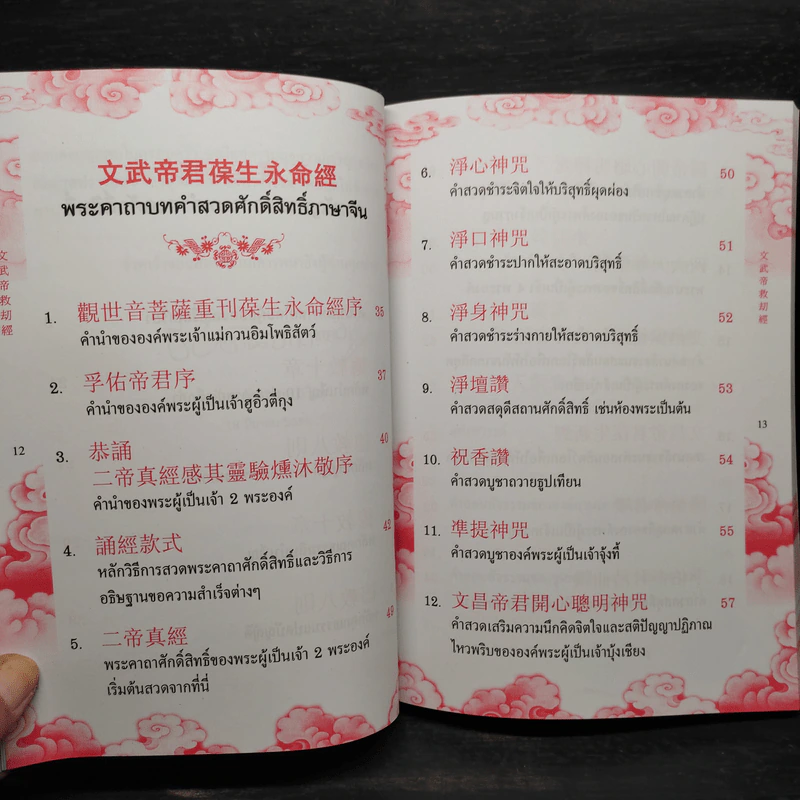 文武帝君葆生永命經
พระคาถาบทคำสวดศักดิ์สิทธิ์ภาษาจีน
1. 觀世音菩薩重刊葆生永命經序 35
คำนำขององค์พระเจ้าแม่กวนอิมโพธิสัตว์
2. 孚佑帝君序 37
คำนำขององค์พระผู้เป็นเจ้าฮูอิ๋วตี่กุง
3. 恭誦 40
二帝真經感其靈驗燻沐敬序
คำนำของพระผู้เป็นเจ้า 2 พระองค์
4. 誦經款式 42
หลักวิธีการสวดพระคาถาศักดิ์สิทธิ์และวิธีการ
อธิษฐานขอความสำเร็จต่างๆ
5. 二帝真經 49
พระคาถาศักดิ์สิทธิ์ของพระผู้เป็นเจ้า 2 พระองค์
เริ่มต้นสวดจากที่นี่
12
文武帝救劫經
6. 淨心神咒 50
คำสวดชำระจิตใจให้บริสุทธิ์ผุดผ่อง
7. 淨口神咒 51
คำสวดชำระปากให้สะอาดบริสุทธิ์
8. 淨身神咒 52
คำสวดชำระร่างกายให้สะอาดบริสุทธิ์
9. 淨壇讚 53
คำสวดสดุดีสถานศักดิ์สิทธิ์ เช่นห้องพระเป็นต้น
10. 祝香讚 54
คำสวดบูชาถวายธูปเทียน
11. 準提神咒 55
คำสวดบูชาองค์พระผู้เป็นเจ้าจุ้งที้
12. 文昌帝君開心聰明神咒 57
คำสวดเสริมความนึกคิดจิตใจและสติปัญญาปฏิภาณ
ไหวพริบขององค์พระผู้เป็นเจ้าบุ้งเชียง
文武帝救劫經
13